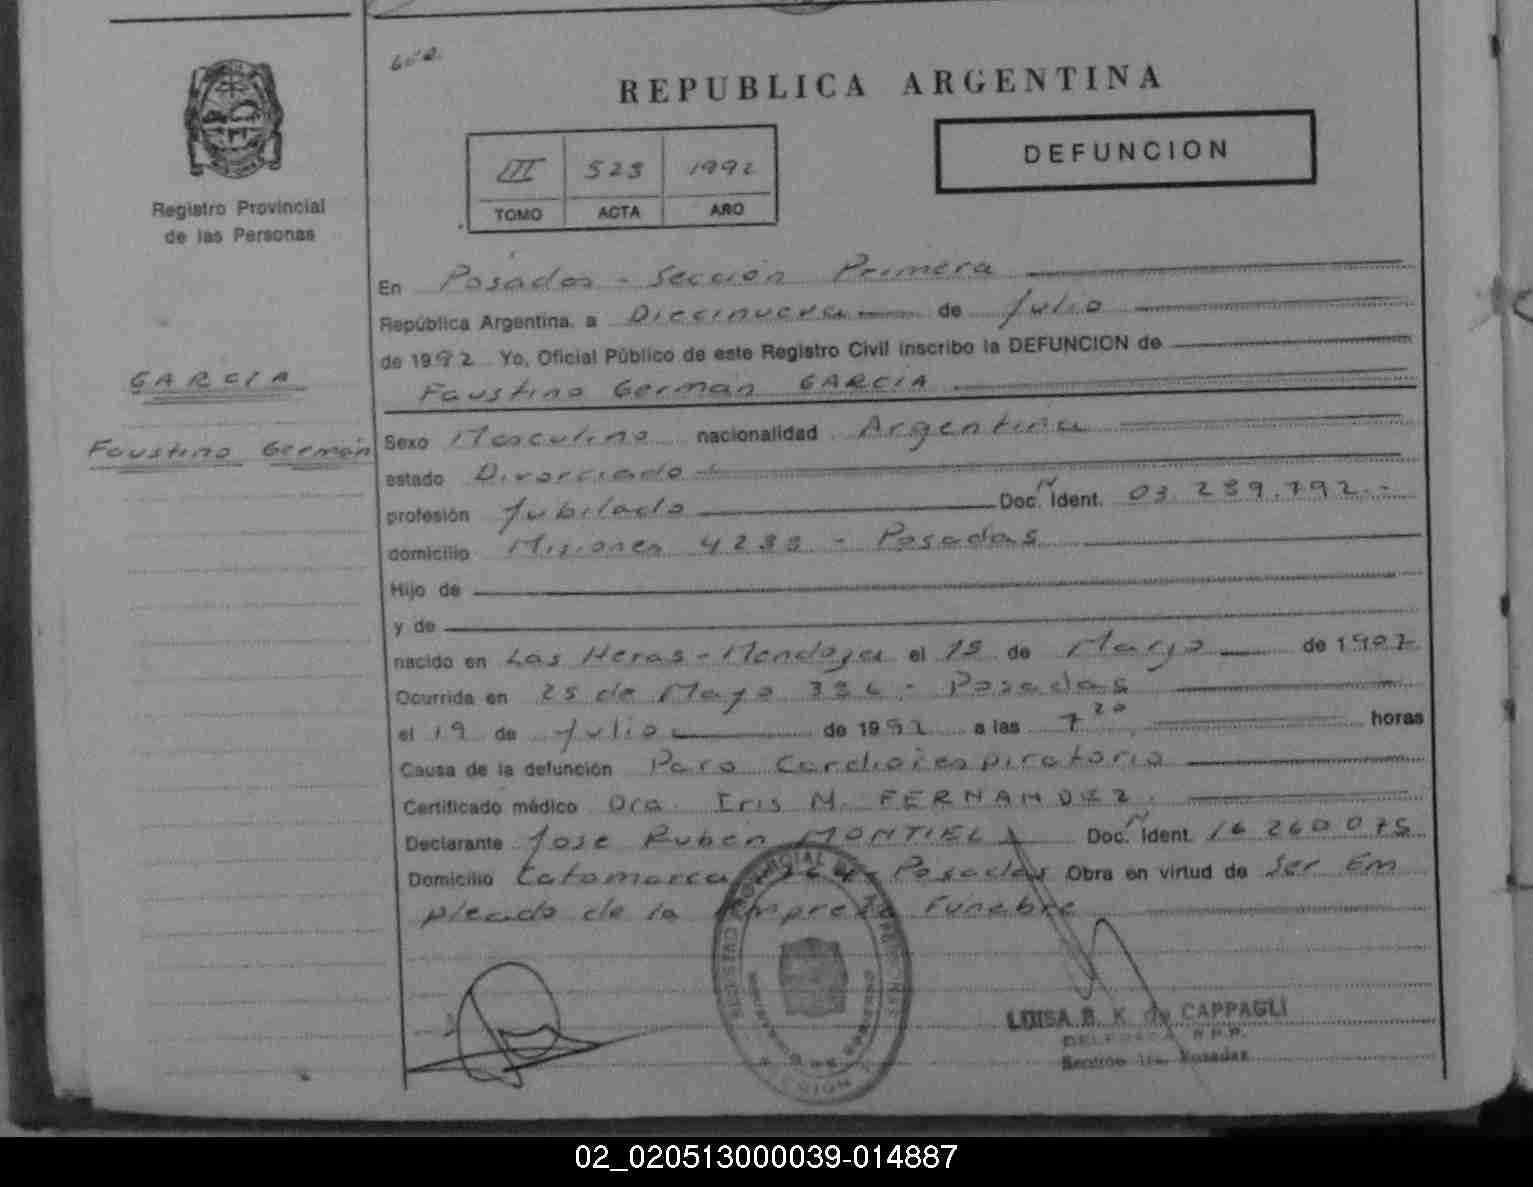 REPUBLICA ARGENTINA
DEFUNCION
III 523 1992
TOMO ACTA AÑO
Registro Provincial
de las Personas
GARCIA
Faustino Germán
En Posadas - Sección Primera
República Argentina, a Diecinueve de Julio
de 1992 Yo, Oficial Público de este Registro Civil inscribo la DEFUNCION de
Faustino Germán GARCIA
Sexo Masculino nacionalidad Argentina
estado Divorciado
profesión Jubilado Doc. Ident. 03.289.792.-
domicilio Misiones 4233 - Posadas
Hijo de
y de
nacido en Las Heras - Mendoza el 15 de Marzo de 1907
Ocurrida en 25 de Mayo 336 - Posadas
el 19 de Julio de 1992 a las 7 20 horas
Causa de la defunción Paro Cardiorespiratorio
Certificado médico Dra. Iris M. FERNANDEZ.
Declarante José Rubén MONTIEL Doc. Ident. 16 260 075
Domicilio Catamarca Posadas Obra en virtud de Ser Em
pleado de la Empresa Funebre
LUISA B. K. de CAPPAGLI
DELEGADA R.P.P.
Sección 1ra. Posadas
02_020513000039-014887